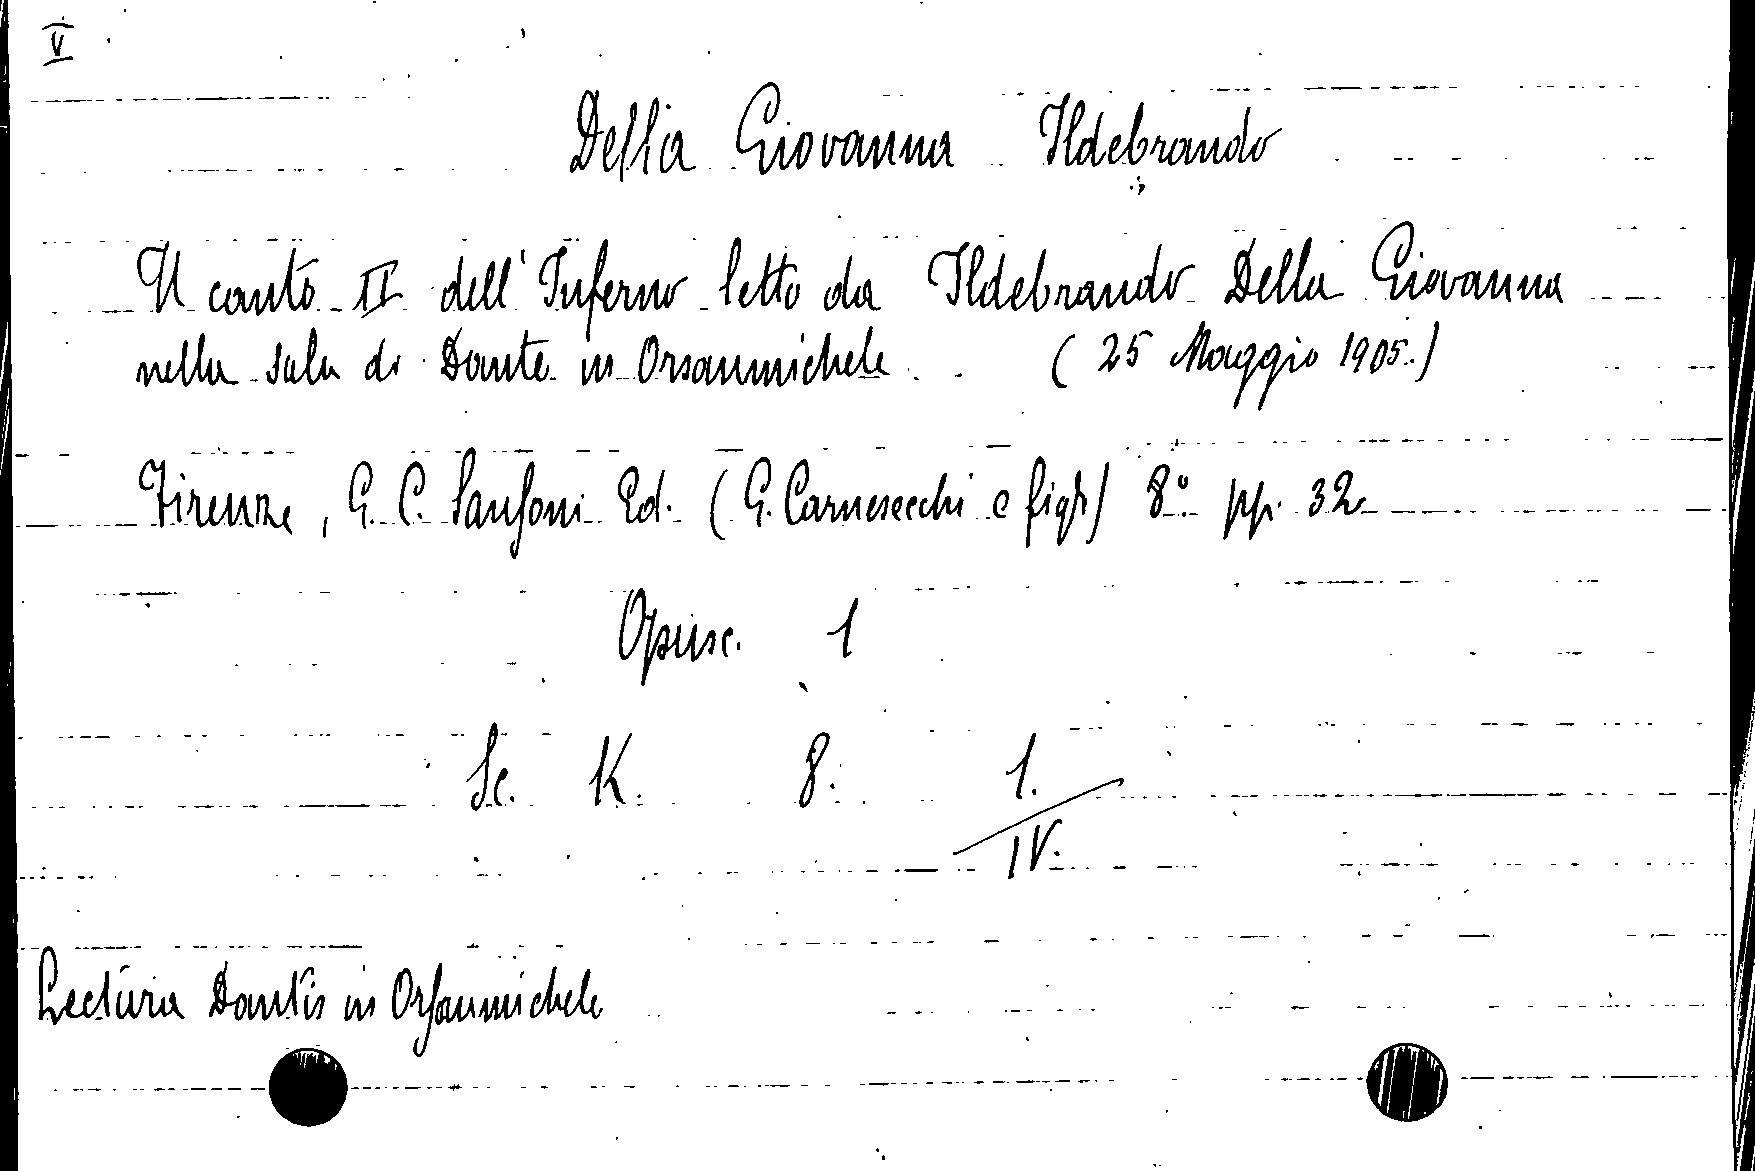 V
Della Giovanna Ildebrando
Il canto II dell'Inferno letto da Ildebrando Della Giovanna
nella sala di Dante in Orsanmichele (25 Maggio 1905.)
Firenze, G. C. Sansoni Ed. (G. Carnesecchi e figli) 8º pp. 32
Opusc. 1
Sc. K. 8. 1.
IV.
Lectura Dantis in Orsanmichele